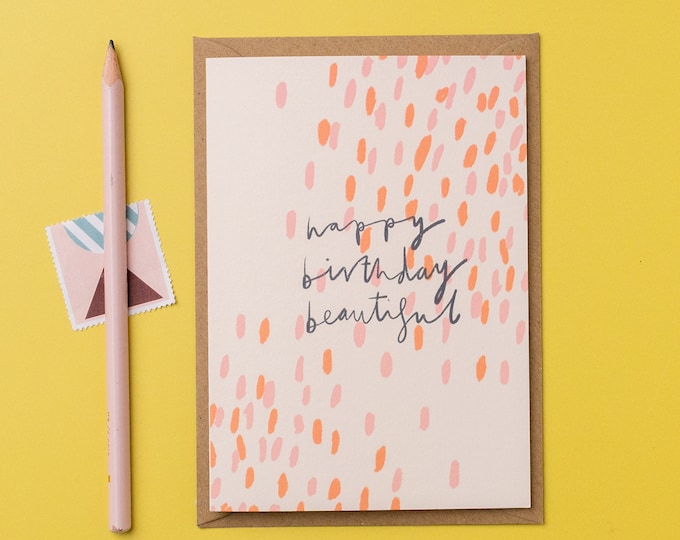 happy
birthday
beautiful